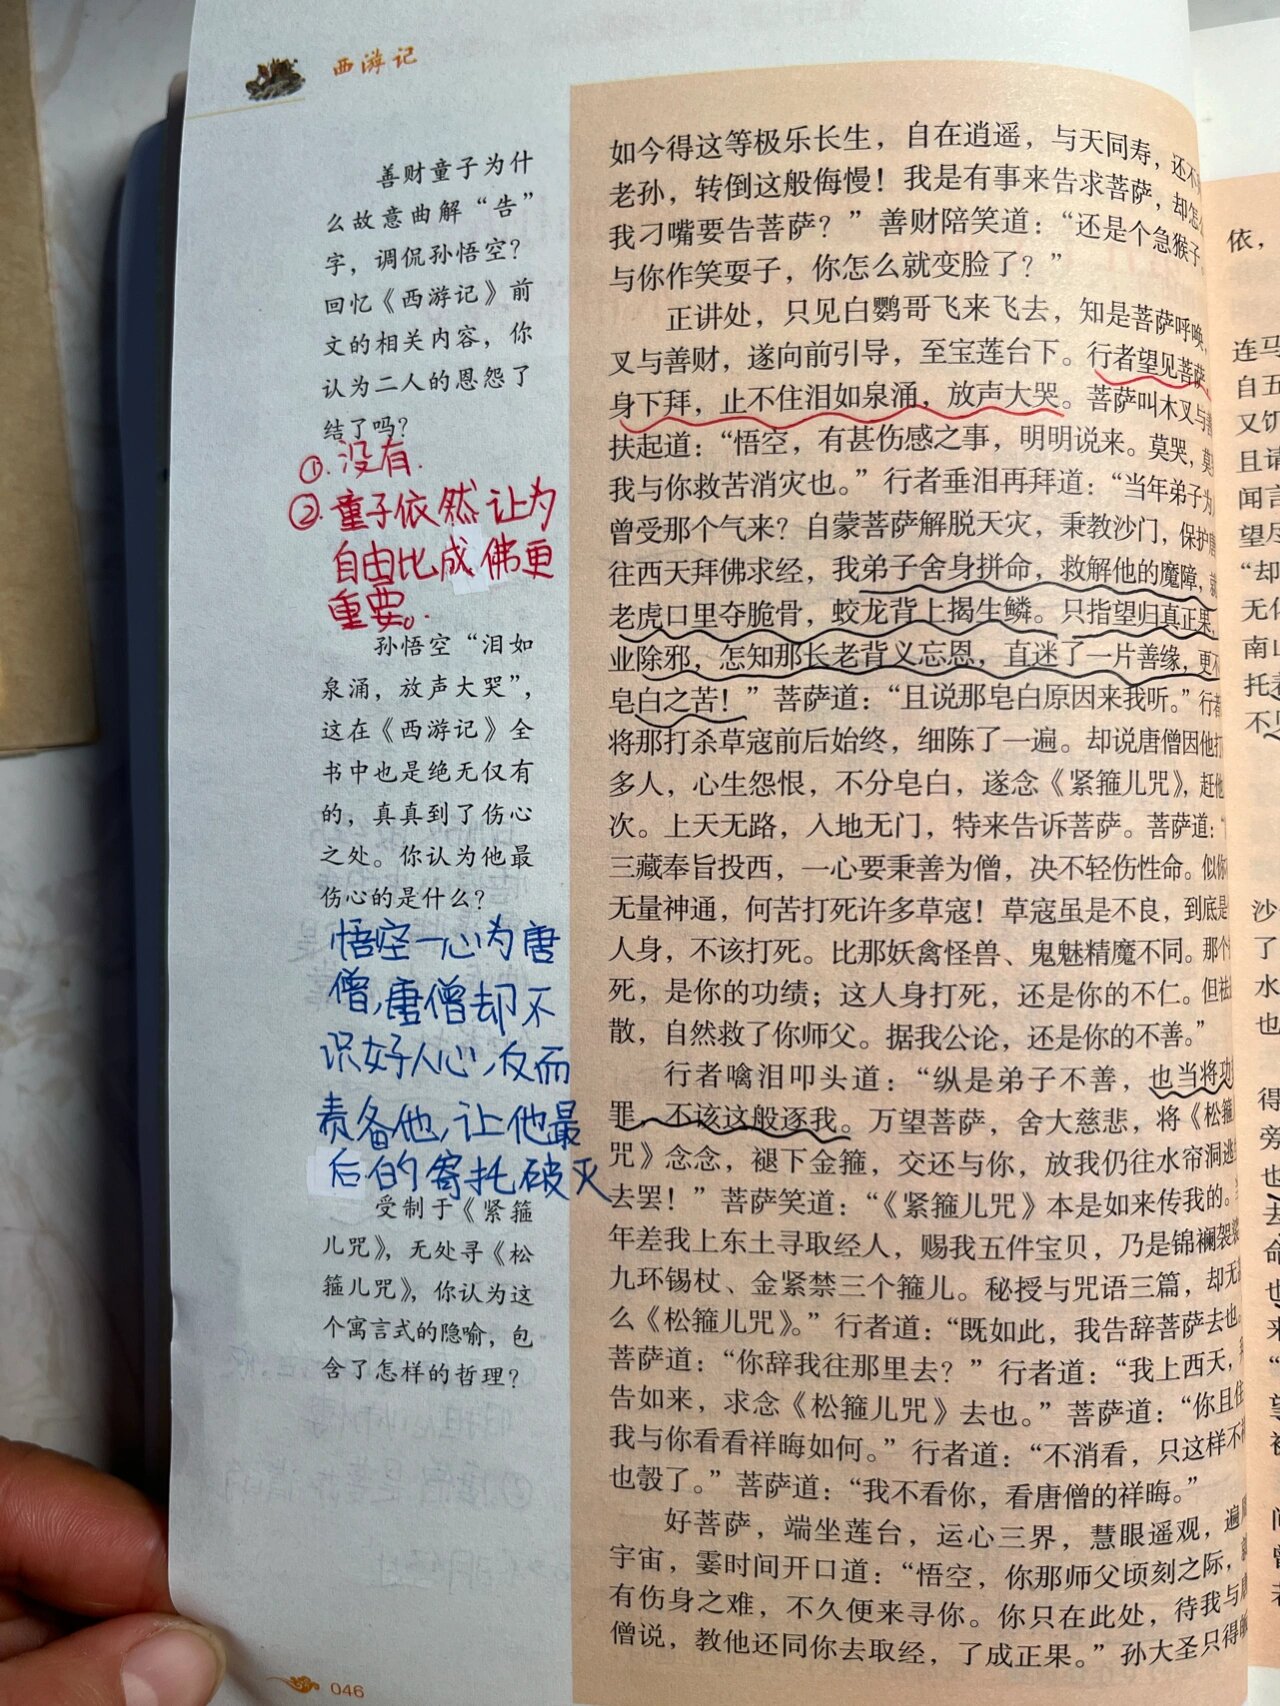 西游记
善财童子为什
么故意曲解“告”
字，调侃孙悟空？
回忆《西游记》前
文的相关内容，你
认为二人的恩怨了
结了吗？
①.没有.
②.童子依然让为
自由比成佛更
重要。.
孙悟空“泪如
泉涌，放声大哭”，
这在《西游记》全
书中也是绝无仅有
的，真真到了伤心
之处。你认为他最
伤心的是什么？
悟空一心为唐
僧，唐僧却不
识好人心，反而
责备他，让他最
后的寄托破灭
受制于《紧箍
儿咒》，无处寻《松
箍儿咒》，你认为这
个寓言式的隐喻，包
含了怎样的哲理？
046
如今得这等极乐长生，自在逍遥，与天同寿，还不
老孙，转倒这般侮慢！我是有事来告求菩萨，却怎
我刁嘴要告菩萨？”善财陪笑道：“还是个急猴子，
与你作笑耍子，你怎么就变脸了？”
正讲处，只见白鹦哥飞来飞去，知是菩萨呼唤，
叉与善财，遂向前引导，至宝莲台下。行者望见菩萨，
身下拜，止不住泪如泉涌，放声大哭。菩萨叫木叉与善
扶起道：“悟空，有甚伤感之事，明明说来。莫哭，莫
我与你救苦消灾也。”行者垂泪再拜道：“当年弟子为
曾受那个气来？自蒙菩萨解脱天灾，秉教沙门，保护唐
往西天拜佛求经，我弟子舍身拼命，救解他的魔障，就
老虎口里夺脆骨，蛟龙背上揭生鳞。只指望归真正果，
业除邪，怎知那长老背义忘恩，直迷了一片善缘，更不
皂白之苦！”菩萨道：“且说那皂白原因来我听。”行者
将那打杀草寇前后始终，细陈了一遍。却说唐僧因他打
多人，心生怨恨，不分皂白，遂念《紧箍儿咒》，赶他
次。上天无路，入地无门，特来告诉菩萨。菩萨道：“
三藏奉旨投西，一心要秉善为僧，决不轻伤性命。似你
无量神通，何苦打死许多草寇！草寇虽是不良，到底是
人身，不该打死。比那妖禽怪兽、鬼魅精魔不同。那个
死，是你的功绩；这人身打死，还是你的不仁。但祛
散，自然救了你师父。据我公论，还是你的不善。”
行者噙泪叩头道：“纵是弟子不善，也当将功
罪，不该这般逐我。万望菩萨，舍大慈悲，将《松箍
咒》念念，褪下金箍，交还与你，放我仍往水帘洞逃
去罢！”菩萨笑道：“《紧箍儿咒》本是如来传我的。
年差我上东土寻取经人，赐我五件宝贝，乃是锦襕袈裟
九环锡杖、金紧禁三个箍儿。秘授与咒语三篇，却无
么《松箍儿咒》。”行者道：“既如此，我告辞菩萨去也。
菩萨道：“你辞我往那里去？”行者道：“我上西天，
告如来，求念《松箍儿咒》去也。”菩萨道：“你且住
我与你看看祥晦如何。”行者道：“不消看，只这样不
也彀了。”菩萨道：“我不看你，看唐僧的祥晦。”
好菩萨，端坐莲台，运心三界，慧眼遥观，遍
宇宙，霎时间开口道：“悟空，你那师父顷刻之际，
有伤身之难，不久便来寻你。你只在此处，待我与
僧说，教他还同你去取经，了成正果。”孙大圣只得
依，
连马
自五
又饥
且请
闻言
望尽
“却
无化
南山
托
不只
沙
了
水
也
得
旁
也
去
命
也
来